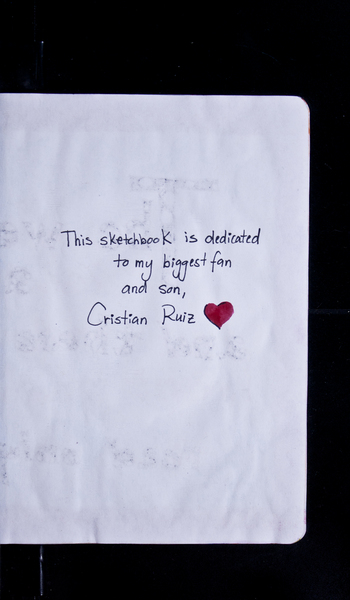 This sketchbook is dedicated
to my biggest fan
and son,
Cristian Ruiz